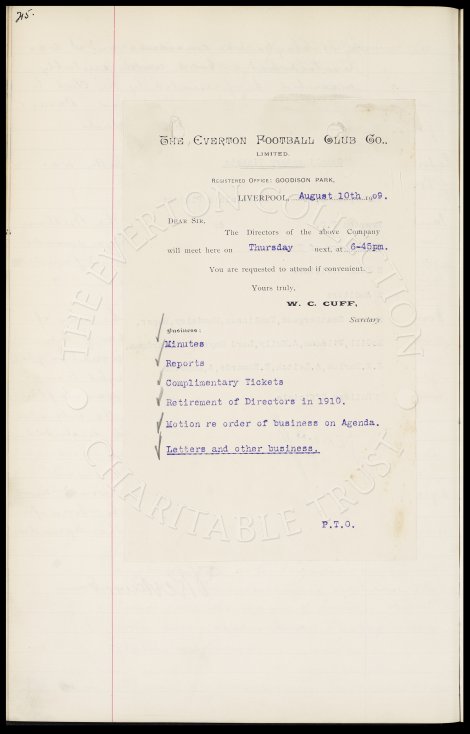 215.
THE EVERTON FOOTBALL CLUB CO.,
LIMITED.
REGISTERED OFFICE: GOODISON PARK,
LIVERPOOL, August 10th 1909.
DEAR SIR,
The Directors of the above Company
will meet here on Thursday next, at 6-45pm.
You are requested to attend if convenient.
Yours truly,
W. C. CUFF,
Secretary.
Business:
Minutes
Reports
Complimentary Tickets
Retirement of Directors in 1910.
Motion re order of business on Agenda.
Letters and other business.
P.T.O.
THE EVERTON COLLECTION
CHARITABLE TRUST